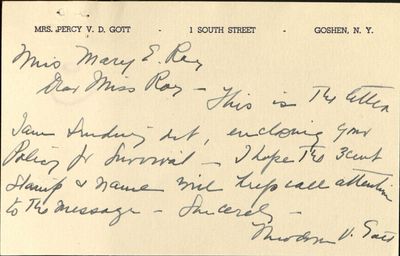 MRS. PERCY V. D. GOTT - 1 SOUTH STREET - GOSHEN, N. Y.
Miss Mary E. Ray
Dear Miss Ray - This is the letter
I am sending out, enclosing your
Policy for Survival - I hope the 3 cent
Stamp & name will help call attention
to the message - Sincerely -
V. Gott